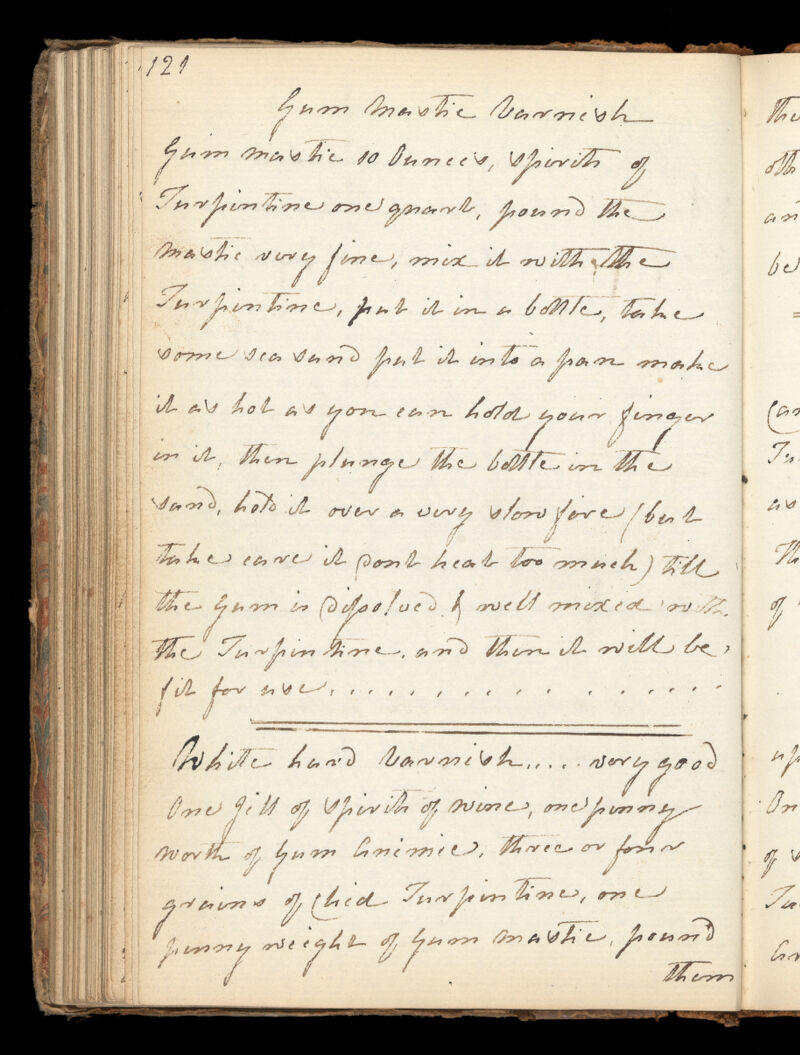 121
Gum Mastic Varnish
Gum mastic 10 Ounces, spirits of
Turpintine one quart, pound the
Mastic very fine, mix it with the
Turpintine, put it in a bottle, take
some sea sand put it into a pan make
it as hot as you can hold your finger
in it, then plunge the bottle in the
sand, hold it over a very slow fire (but
take care it dont heat too much) till
the Gum is dissolved & well mixed with
the Turpintine, and then it will be
fit for use
White hard Varnish.... very good
One Jill of spirits of wine, one penny
worth of Gum Animie, three or four
grains of Turpintine, one
penny weight of Gum Mastic, pound
them
the
oth
an
be
Th
of
as
up
On
of